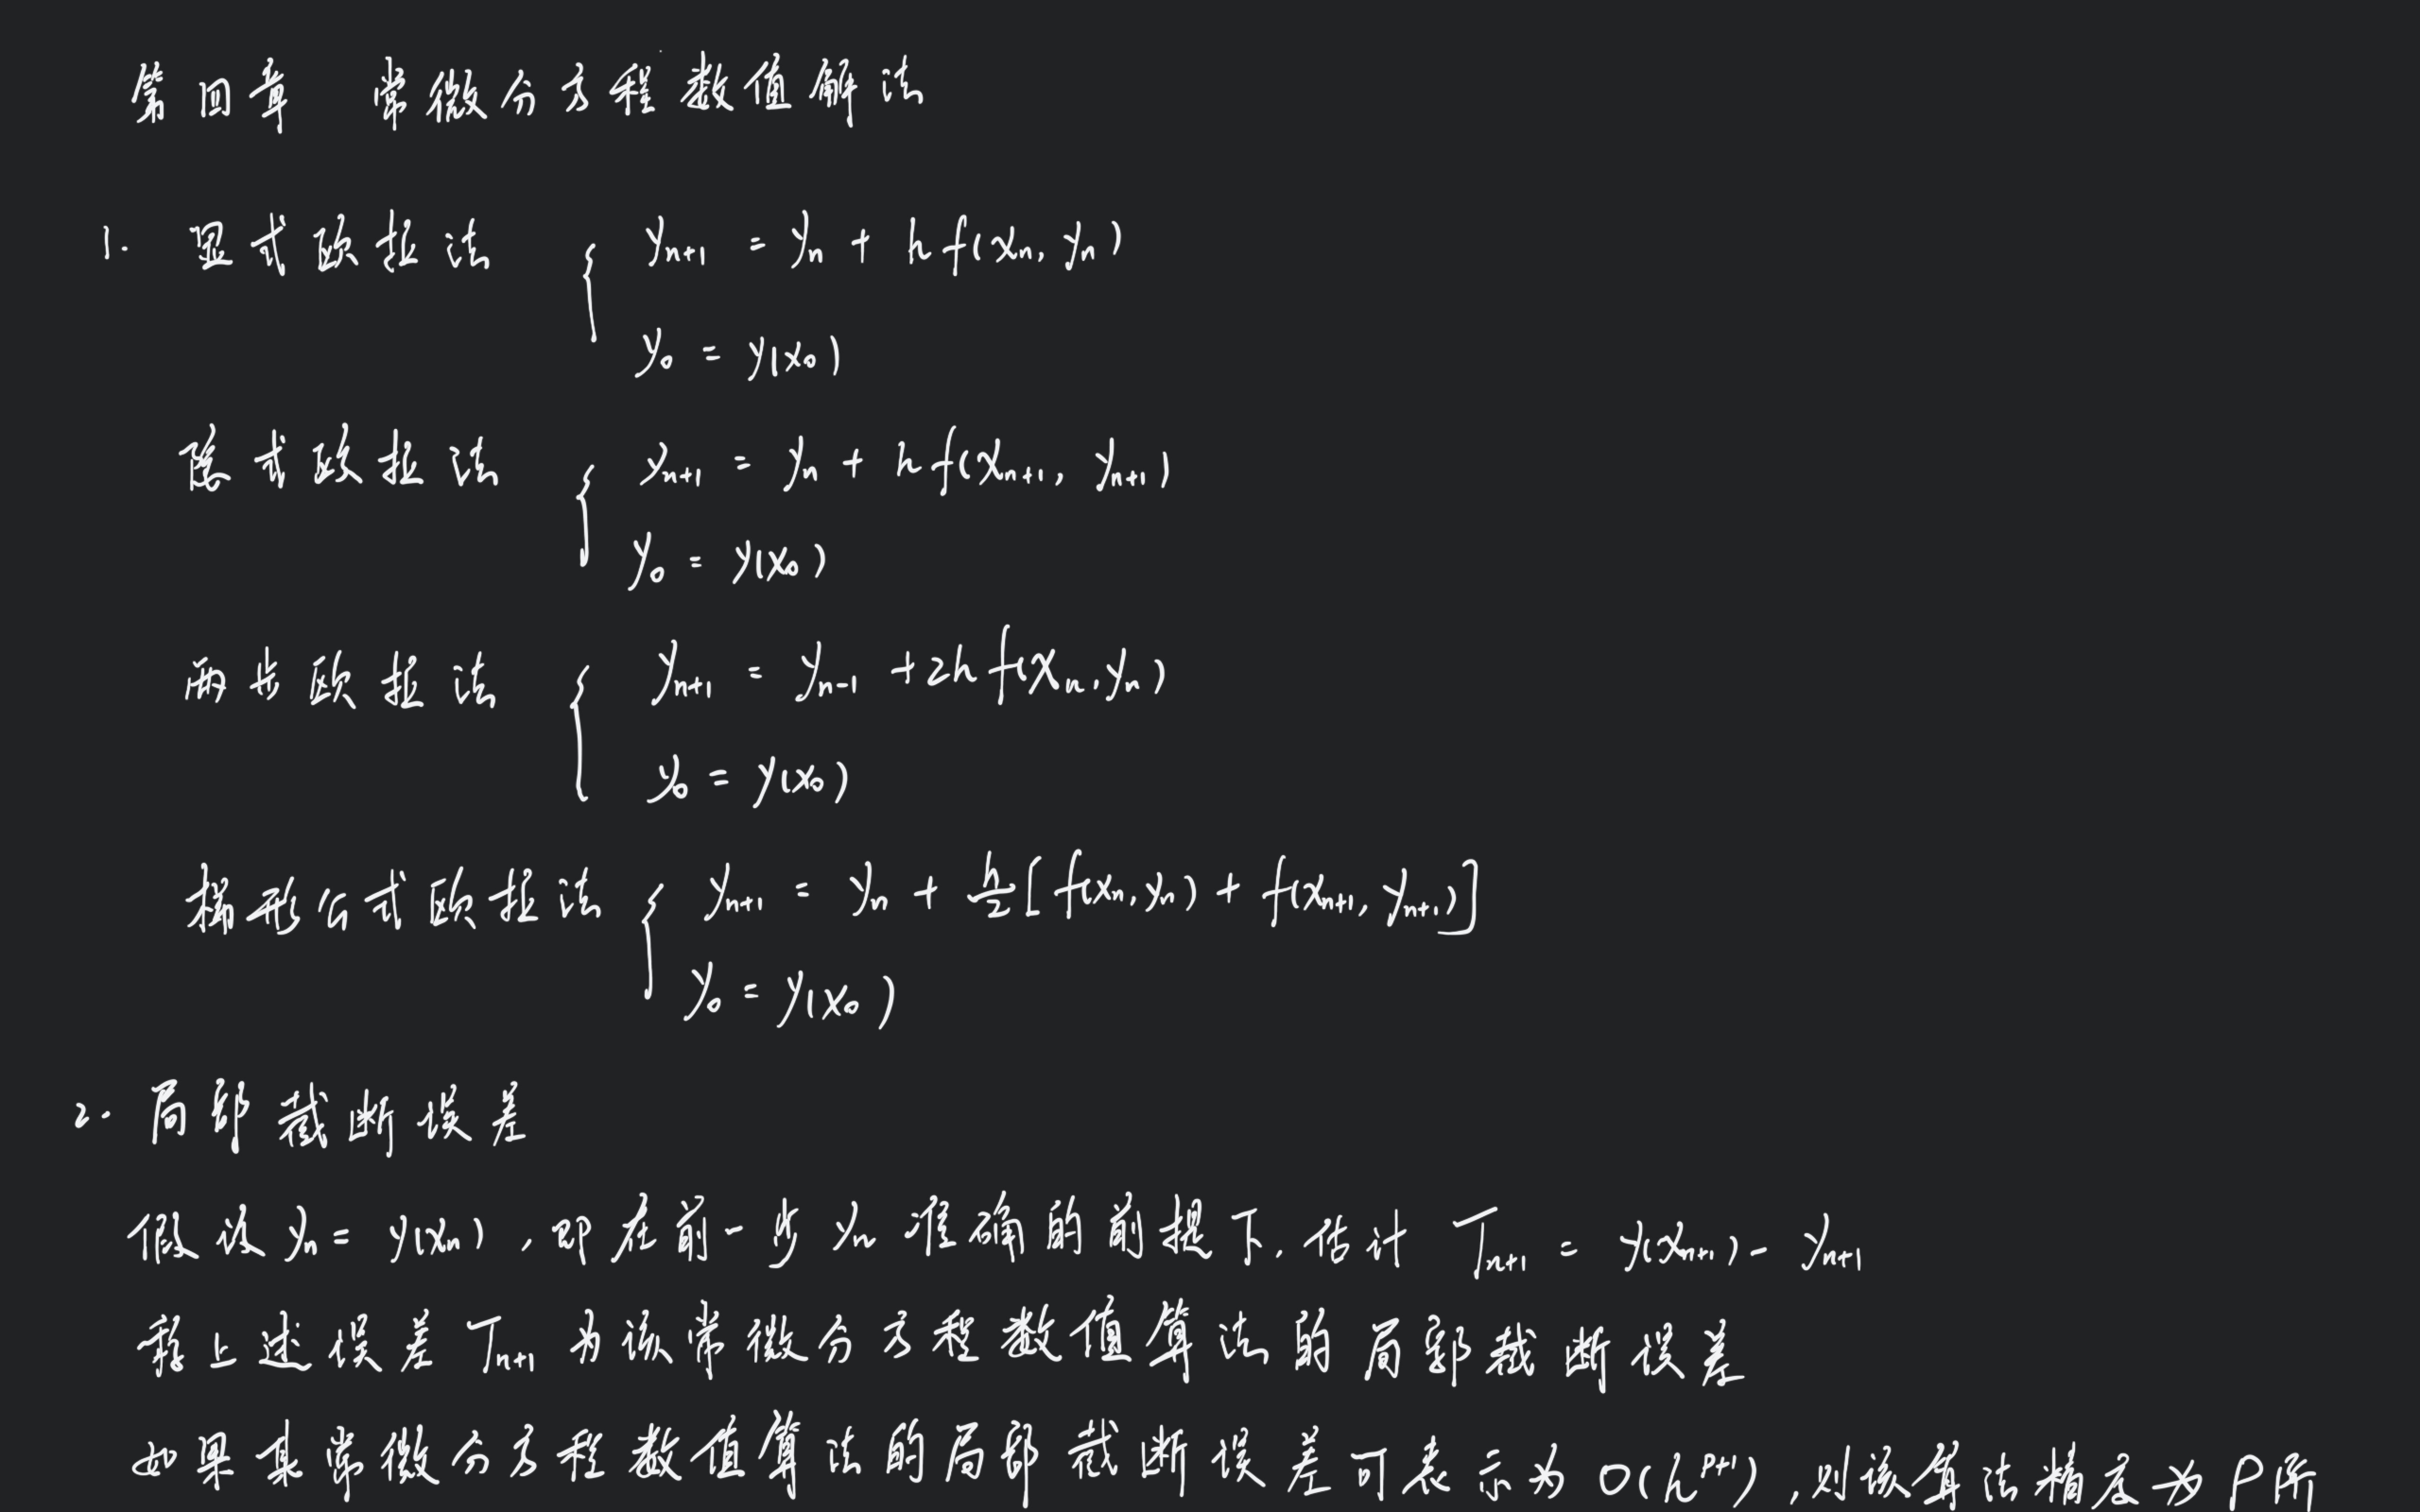 第四章 常微分方程数值解法
1. 显式欧拉法 { y_{n+1} = y_n + h f(x_n, y_n)
y_0 = y(x_0)
隐式欧拉法 { y_{n+1} = y_n + h f(x_{n+1}, y_{n+1})
y_0 = y(x_0)
两步欧拉法 { y_{n+1} = y_{n-1} + 2h f(x_n, y_n)
y_0 = y(x_0)
梯形公式欧拉法 { y_{n+1} = y_n + \frac{h}{2} [f(x_n, y_n) + f(x_{n+1}, y_{n+1})]
y_0 = y(x_0)
2. 局部截断误差
假设 y_n = y(x_n), 即在前一步 y_n 准确的前提下, 估计 T_{n+1} = y(x_{n+1}) - y_{n+1}
称上述误差 T_{n+1} 为该常微分方程数值算法的局部截断误差
如果某常微分方程数值算法的局部截断误差可表示为 O(h^{p+1}), 则该算法精度为 P 阶